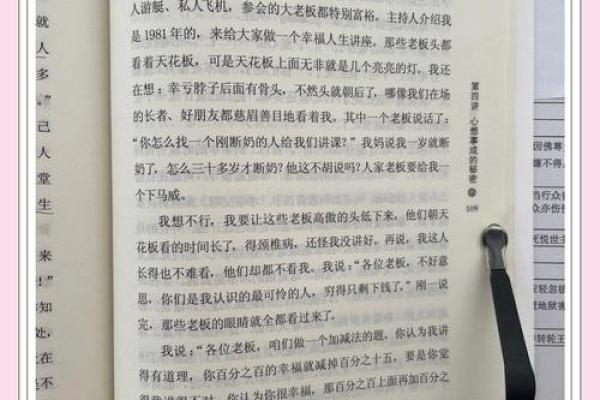 人游艇、私人飞机，参会的大老板都特别富裕，主持人介绍我
是1981年的，来给大家做一个幸福人生讲座。那些老板头都
看着天花板，可是天花板上面无非就是几个亮亮的灯。我还
在想：幸亏脖子后面有骨头，不然头就朝后了，哪像我们在场
的长者、好朋友都慈眉善目地看着我。其中一个老板说话了：
“你怎么找一个刚断奶的人给我们讲课？”我妈说我一岁就断
奶了，怎么三十多岁才断奶？他这不胡说吗？人家老板要给我一
个下马威。
我想不行，我要让这些老板高傲的头低下来，他们朝天
花板看的时间长了，得颈椎病，还怪我没讲好。再说，我这人
长得也不难看，他们却都不看我。我说：“各位老板，不好意
思，你们是我认识的最可怜的人，穷得只剩下钱了。”刚一说
完，那些老板的眼睛就全都看过来了。
我说：“各位老板，咱们做一个加减法的题。你认为我讲
得有道理，你百分之百的幸福就减掉百分之十五，要是你觉
得我讲得不对，你认为你很幸福，那百分之百上面再加百分之
第四讲 心想事成的秘密
109
就
人
多
。”
己
人
堂
生
来
！”
知
处，
在
因佛尊
嫌不得
行众
众亦伤
无悦世主
轻忽
地狱害
转轮王